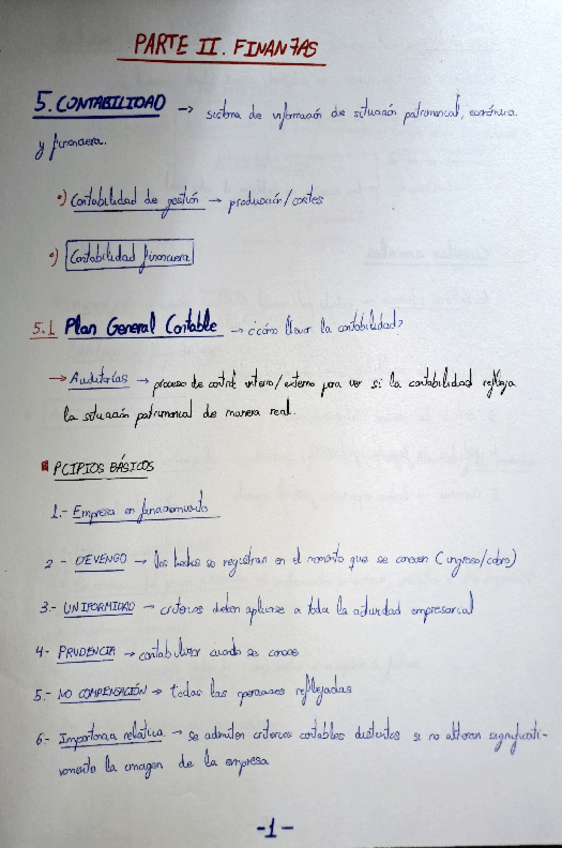 PARTE II. FINANZAS
5. CONTABILIDAD → sistema de información de situación patrimonial, económica
y financiera.
•) Contabilidad de gestión → producción/costes
•) Contabilidad financiera
5.1 Plan General Contable → ¿cómo llevar la contabilidad?
→ Auditorías → proceso de control interno/externo para ver si la contabilidad refleja
la situación patrimonial de manera real.
PCIPIOS BÁSICOS
1.- Empresa en funcionamiento
2 - DEVENGO → los hechos se registran en el momento que se conocen (ingreso/cobro)
3.- UNIFORMIDAD → criterios deben aplicarse a toda la actividad empresarial
4- PRUDENCIA → contabilizar cuando se conoce
5.- NO COMPENSACIÓN → todas las operaciones reflejadas
6- Importancia relativa → se admiten criterios contables distintos si no alteran significati-
vamente la imagen de la empresa
-1-